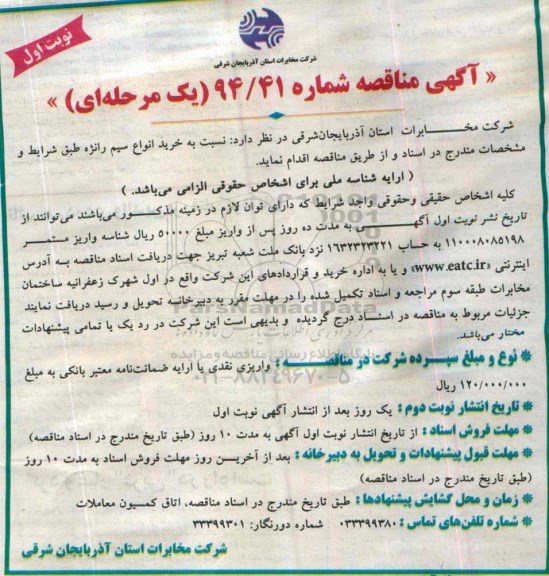 نوبت اول
شرکت مخابرات استان آذربایجان شرقی
« آگهی مناقصه شماره ۹۴/۴۱ (یک مرحله‌ای) »
شرکت مخابرات استان آذربایجان‌شرقی در نظر دارد: نسبت به خرید انواع سیم رانژه طبق شرایط و
مشخصات مندرج در اسناد و از طریق مناقصه اقدام نماید.
( ارایه شناسه ملی برای اشخاص حقوقی الزامی می‌باشد. )
کلیه اشخاص حقیقی وحقوقی واجد شرایط که دارای توان لازم در زمینه مذکور می‌باشند می‌توانند از
تاریخ نشر نوبت اول آگهی به مدت ده روز پس از واریز مبلغ ۵۰۰۰۰ ریال شناسه واریز مستمر
۱۱۰۰۰۸۰۸۵۱۹۸ به حساب ۱۶۳۲۳۲۳۲۲۱ نزد بانک ملت شعبه تبریز جهت دریافت اسناد مناقصه به آدرس
اینترنتی «www.eatc.ir» و یا به اداره خرید و قراردادهای این شرکت واقع در اول شهرک زعفرانیه ساختمان
مخابرات طبقه سوم مراجعه و اسناد تکمیل شده را در مهلت مقرر به دبیرخانه تحویل و رسید دریافت نمایند
جزئیات مربوط به مناقصه در اسناد درج گردیده و بدیهی است این شرکت در رد یک یا تمامی پیشنهادات
مختار می‌باشد.
ParsNamadData
پایگاه اطلاع رسانی مناقصه و مزایده
۰۲۱-۸۸۳۴۹۶۷۰-۵
* نوع و مبلغ سپرده شرکت در مناقصه : واریزی نقدی یا ارایه ضمانت‌نامه معتبر بانکی به مبلغ
۱۲۰/۰۰۰/۰۰۰ ریال
* تاریخ انتشار نوبت دوم : یک روز بعد از انتشار آگهی نوبت اول
* مهلت فروش اسناد : از تاریخ انتشار نوبت اول آگهی به مدت ۱۰ روز (طبق تاریخ مندرج در اسناد مناقصه)
* مهلت قبول پیشنهادات و تحویل به دبیرخانه : بعد از آخرین روز مهلت فروش اسناد به مدت ۱۰ روز
(طبق تاریخ مندرج در اسناد مناقصه)
* زمان و محل گشایش پیشنهادها : طبق تاریخ مندرج در اسناد مناقصه، اتاق کمسیون معاملات
* شماره تلفن‌های تماس : ۰۳۳۳۹۹۳۸۰ شماره دورنگار: ۳۳۳۹۹۳۰۱
شرکت مخابرات استان آذربایجان شرقی